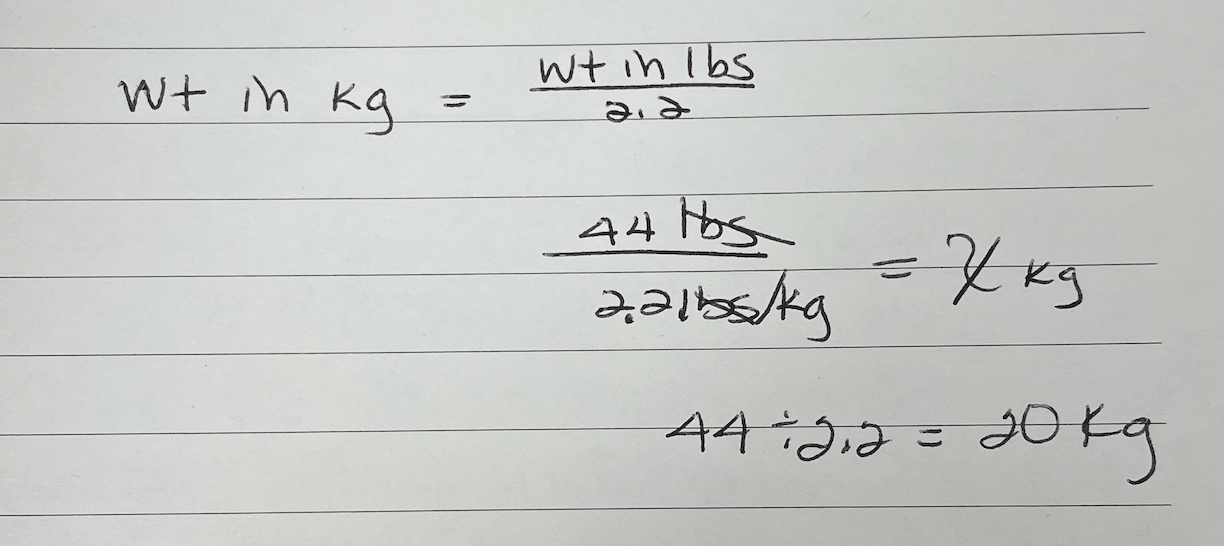 Wt in kg = Wt in lbs / 2.2
44 lbs / 2.2 lbs/kg = x kg
44 ÷ 2.2 = 20 kg